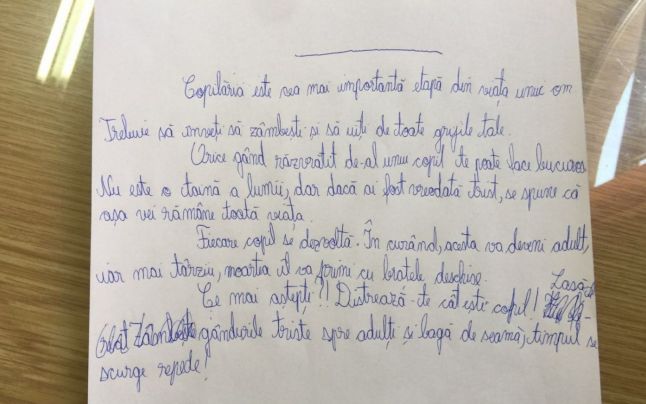 Copilăria este cea mai importantă etapă din viața unui om.
Trebuie să înveți să zâmbești și să uiți de toate grijile tale.
Orice gând răzvrătit de-al unui copil te poate face bucuros.
Nu este o taină a lumii, dar dacă ai fost vreodată trist, se spune că
așa vei rămâne toată viața.
Fiecare copil se dezvoltă. În curând, acesta va deveni adult,
iar mai târziu, moartea îl va primi cu brațele deschise.
Ce mai aștepți?! Distrează-te cât ești copil! Lasă
gândurile triste spre adulți și bagă de seamă, timpul se
scurge repede!